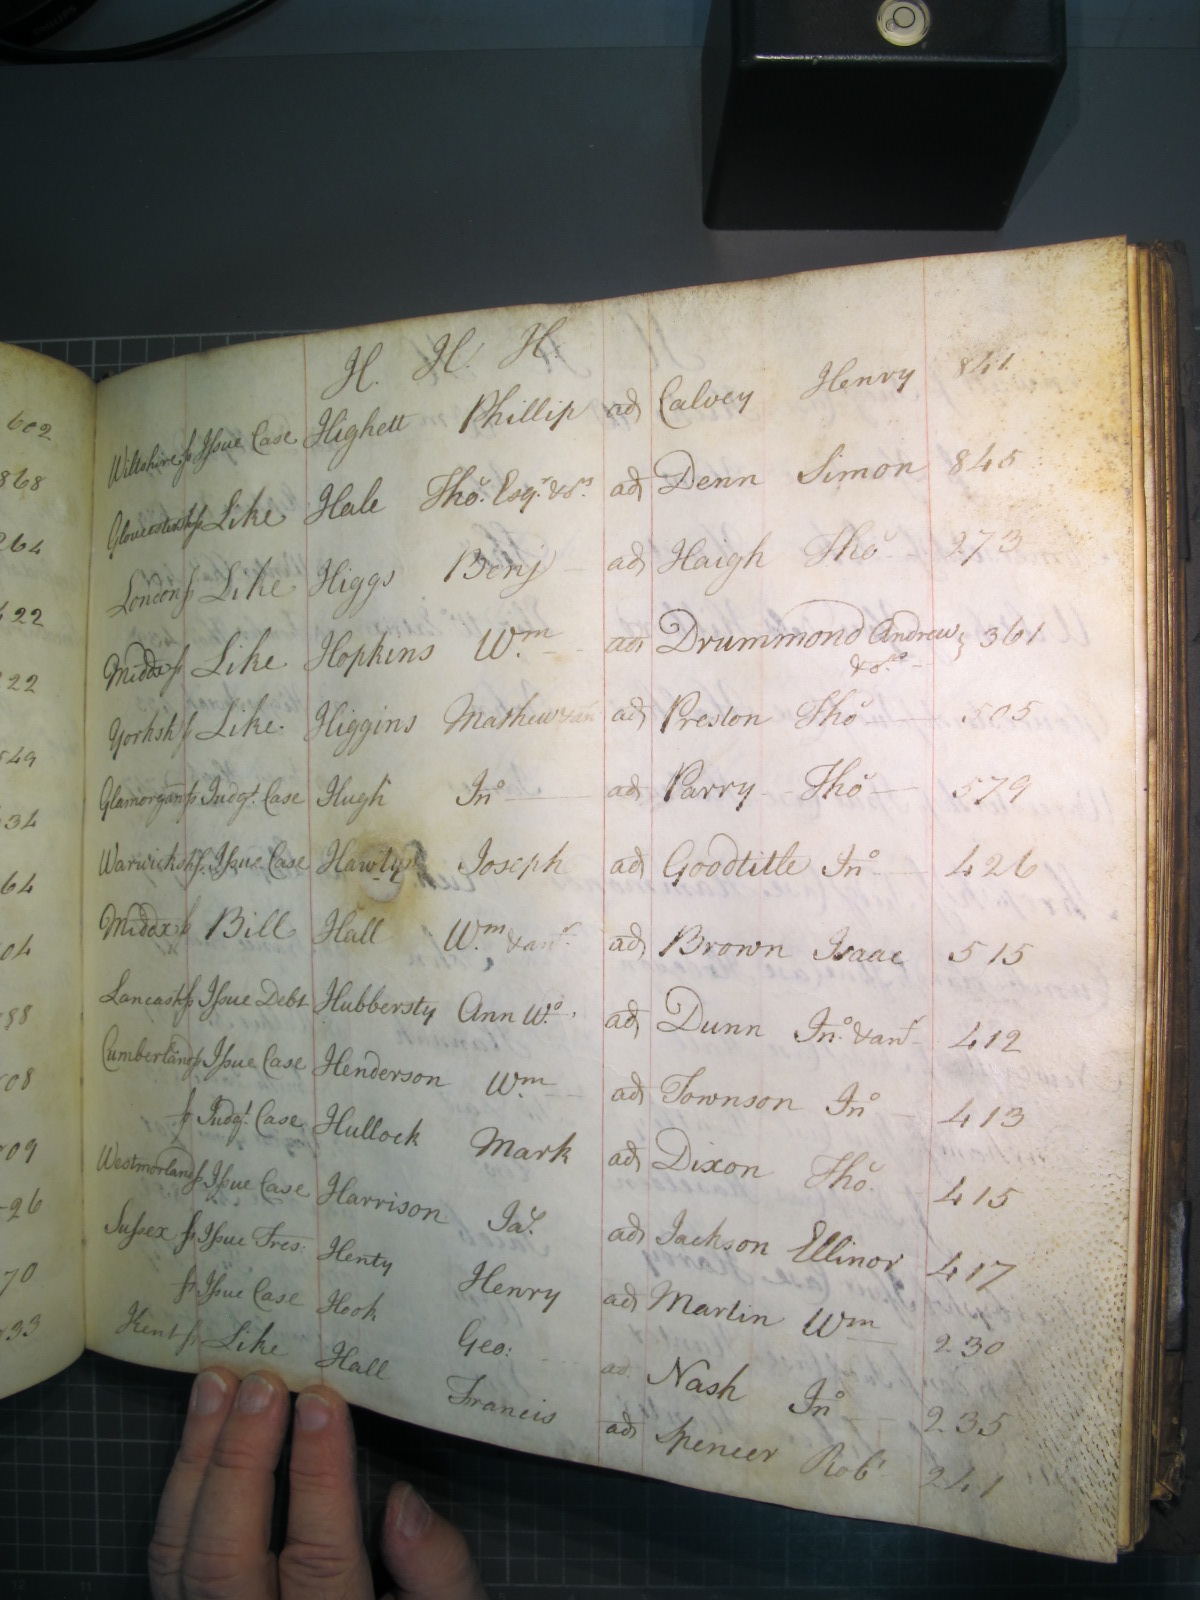 PHILIPS
602
868
264
22
22
549
34
64
04
98
08
09
26
70
33
H. H. H.
Wiltshire ss Issue Case Highett Phillip ads Calvey Henry 841
Gloucestersh ss Like Hale Tho.s Esqr. & ors. ads Denn Simon 845
London ss Like Higgs Benj ads Haigh Tho.s 273
Middx ss Like Hopkins Wm. ads Drummond Andrew } 361
& ors.
Yorksh ss Like Higgins Mathew & an ads Preston Thos 505
Glamorgan ss Judgt. Case Hugh Jno ads Parry Thos 579
Warwicksh ss Issue Case Joseph ads Goodtitle Jno 426
Middx ss Bill Hall Wm. & anr. ads Brown Isaac 515
Lancash ss Issue Debt Hubbersty Ann Wo. ads Dunn Jno. & anr 412
Cumberland ss Issue Case Henderson Wm ads Townson Jno 413
ss Judgt. Case Hullock Mark ads Dixon Thos. 415
Westmorland ss Issue Case Harrison Jas. ads Jackson Ellinor 417
Sussex ss Issue Tres: Henty Henry ads Martin Wm 230
ss Issue Case Hook Geo: ads Nash Jno 235
Kent ss Like Hall Francis ads Spencer Robt 241